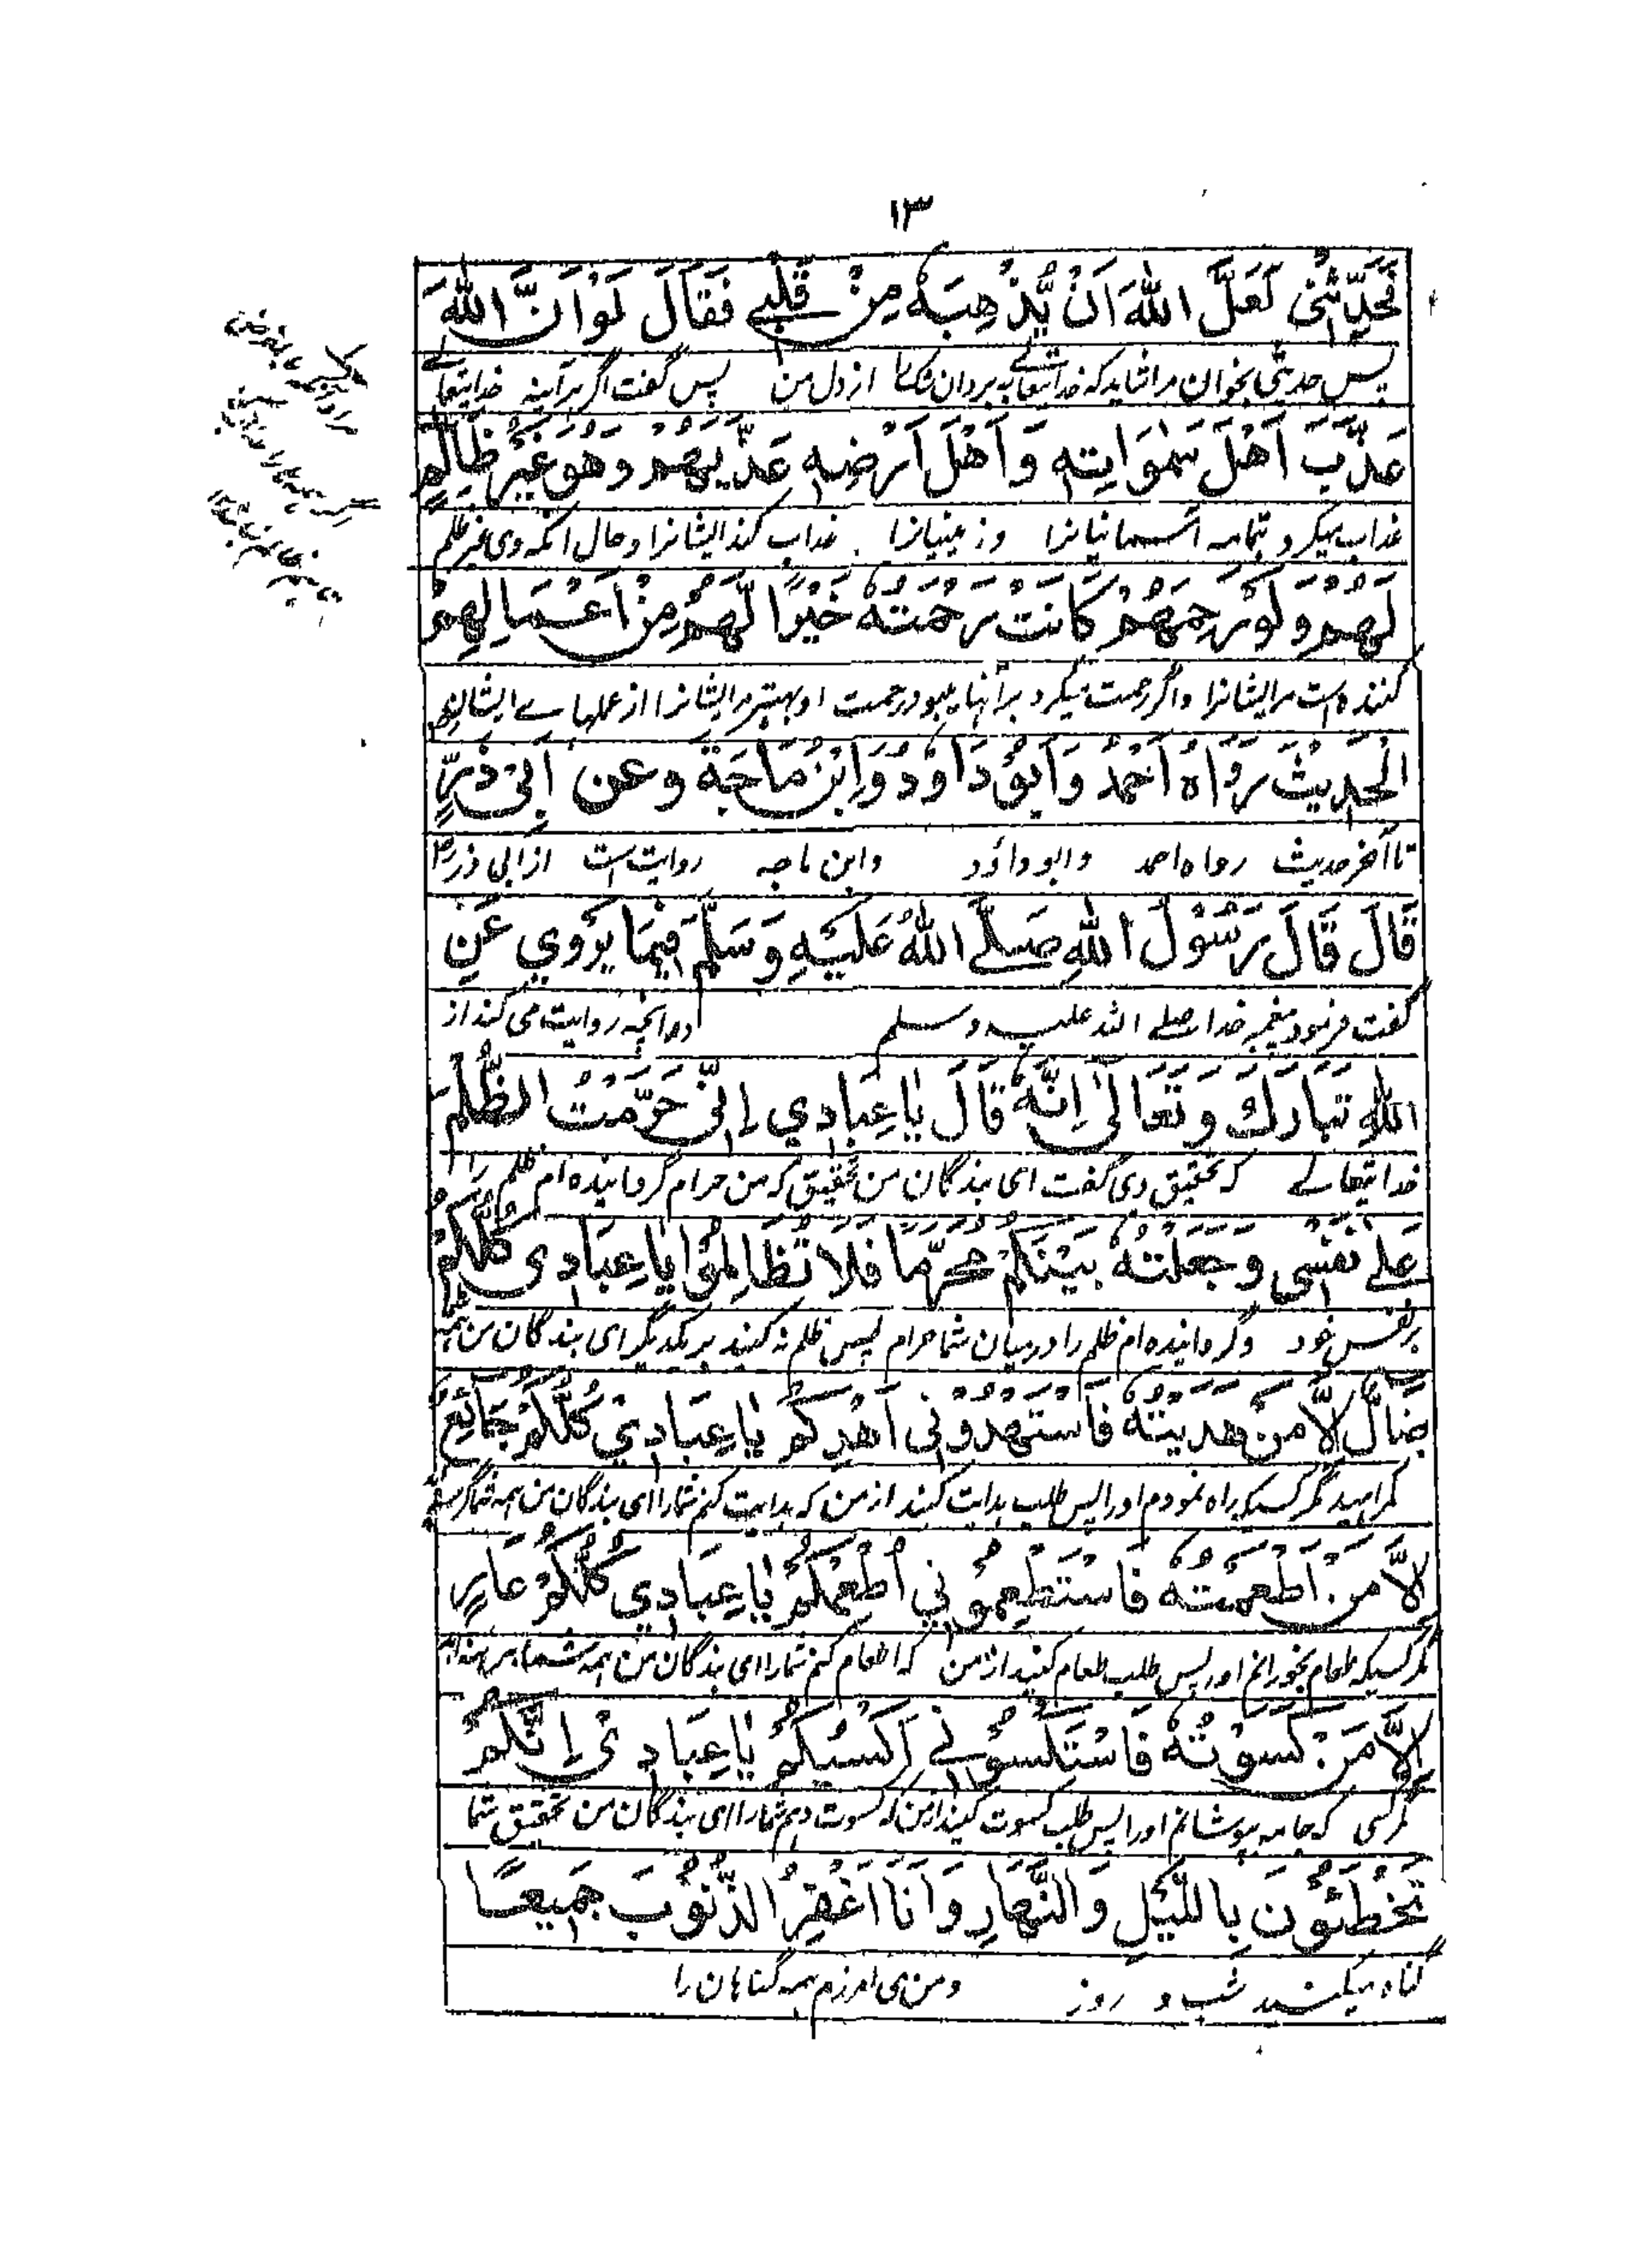 ۱۳
فَحَدِّثْنِی لَعَلَّ اللّٰهَ اَنْ یُّذْهِبَهٗ مِنْ قَلْبِی فَقَالَ لَوْ اَنَّ اللّٰهَ
پس حدیثی بخوان مرا شاید که خدایتعالی به برد آن شک را از دل من پس گفت اگر هر آینه خدایتعالی
عَذَّبَ اَهْلَ سَمٰوَاتِهٖ وَ اَهْلَ اَرْضِهٖ عَذَّبَهُمْ وَهُوَ غَیْرُ ظَالِمٍ
عذاب میکرد تمامه آسمانیانرا وزمینیانرا عذاب کند ایشانرا و حال آنکه وی غیر ظلم
لَهُمْ وَلَوْ رَحِمَهُمْ کَانَتْ رَحْمَتُهٗ خَیْرًا لَّهُمْ مِنْ اَعْمَالِهِمْ
کننده است مر ایشانرا و اگر رحمت میکرد بر آنها میبود رحمت او بهتر مر ایشانرا از عملهاے ایشان
الْحَدِیْثَ رَوَاهُ اَحْمَدُ وَ اَبُوْ دَاوٗدَ وَ ابْنُ مَاجَةَ وَعَنْ اَبِیْ ذَرٍّ
تا آخر حدیث رواه احمد و ابو داؤد و ابن ماجه روایت است از ابی ذر رض
قَالَ قَالَ رَسُوْلُ اللّٰهِ صَلَّے اللّٰهُ عَلَیْهِ وَسَلَّمَ فِیْمَا یَرْوِی عَنِ
گفت فرمود پیغمبر خدا صلے الله علیه وسلم در آنچه روایت می کند از
اللّٰهِ تَبَارَكَ وَتَعَالٰی اِنَّهٗ قَالَ یٰا عِبَادِی اِنِّی حَرَّمْتُ الظُّلْمَ
خدایتعالے که تحقیق وی گفت ای بندگان من تحقیق که من حرام گردانیده ام ظلم را
عَلٰے نَفْسِی وَجَعَلْتُهٗ بَیْنَکُمْ مُحَرَّمًا فَلَا تَظَالَمُوْا یٰا عِبَادِی کُلُّکُمْ
بر نفس خود و گردانیده ام ظلم را درمیان شما حرام پس ظلم نه کنید بر یکدیگر ای بندگان من همه
ضَالٌّ اِلَّا مَنْ هَدَیْتُهٗ فَاسْتَهْدُوْنِی اَهْدِکُمْ یٰا عِبَادِیْ کُلُّکُمْ جَائِعٌ
گمراهید مگر کسیکه راه نمودم او را پس طلب هدایت کنید از من که هدایت کنم شما را ای بندگان من همه شما گرسنه
اِلَّا مَنْ اَطْعَمْتُهٗ فَاسْتَطْعِمُوْنِی اُطْعِمْکُمْ یٰا عِبَادِی کُلُّکُمْ عَارٍ
مگر کسیکه طعام بخورانم او را پس طلب طعام کنید از من که اطعام کنم شما را ای بندگان من همه شما برهنه اید
اِلَّا مَنْ کَسَوْتُهٗ فَاسْتَکْسُوْنِے اَکْسُکُمْ یٰا عِبَادِی اِنَّکُمْ
مگر کسی که جامه بپوشانم او را پس طلب کسوت کنید از من که کسوت دهم شما را ای بندگان من تحقیق شما
تُخْطِئُوْنَ بِاللَّیْلِ وَالنَّهَارِ وَاَنَا اَغْفِرُ الذُّنُوْبَ جَمِیْعًا
گناه میکنید شب و روز و من می آمرزم همه گناهان را